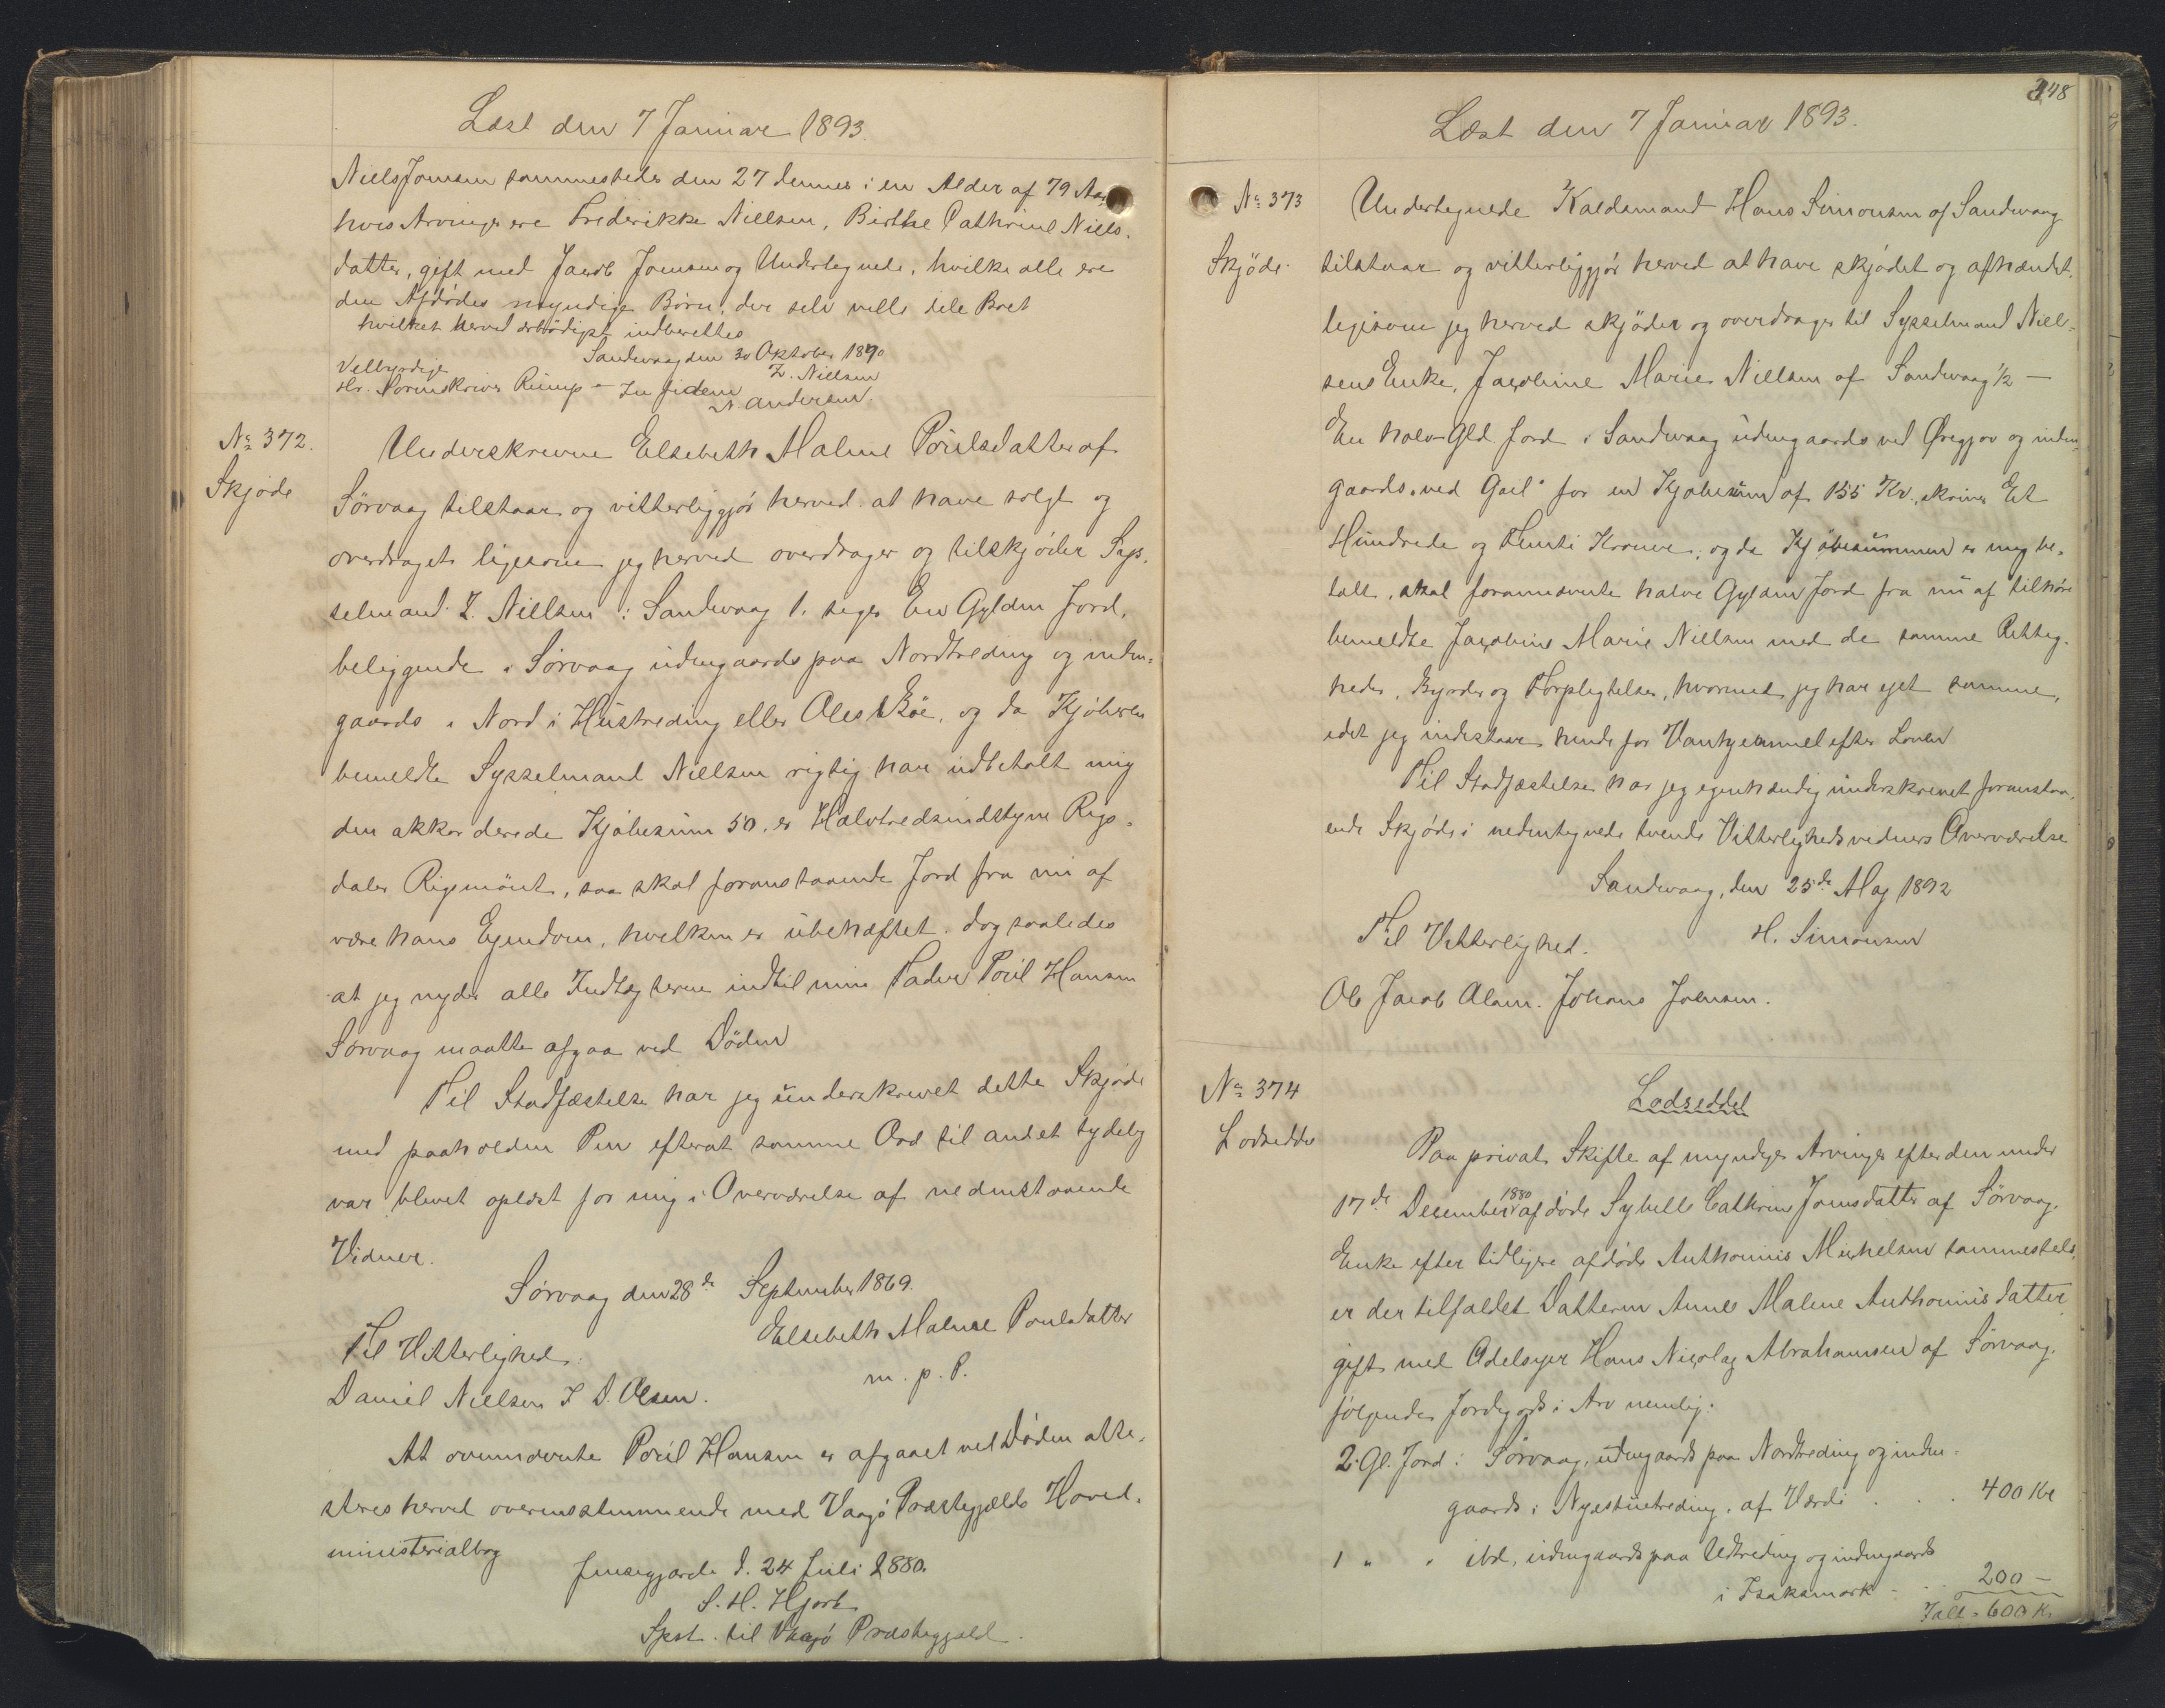 Læst den 7 Januar 1893.
Niels Joensen sammesteds den 27 dennes i en Alder af 79 Aar,
hvis Arvinger ere Frederikke Nielsen, Birthe Cathrine Niels-
datter, gift med Jacob Joensen og Undertegnede, hvilke alle ere
den Afdødes myndige Børn, der selv ville dele Boet
hvilket herved ærbødigst indberettes
Sandevaag den 30 Oktober 1890
Velbyrdige Z. Nielsen
Hr. Sorenskriver Rump - In fidem
N Andersen.
No 372.
Skjøde
Underskrevne Elsebeth Malene Poulsdatter af
Sørvaag tilstaar og vitterliggjør herved at have solgt og
overdraget ligesom jeg herved overdrager og tilskjøder Sys-
selmand Z. Nielsen i Sandevaag 1. siger En Gylden Jord,
beliggende i Sørvaag udengaards paa Nordtreding og inden-
gaards i Nord i Hustreding eller Oles Bøe, og da Kjøberen
bemeldte Sysselmand Nielsen rigtig har udbetalt mig
den akkorderede Kjøbesum 50, er Halvtredsindstyve Rigs-
daler Rigsmønt, saa skal foranstaaende Jord fra nu af
være hans Ejendom, hvilken er ubehæftet, dog saaledes
at jeg nyder alle Indtægterne indtil min Fader Poul Hansen
Sørvaag maatte afgaa ved Døden
Til Stadfæstelse har jeg underskrevet dette Skjøde
med paaholden Pen efterat samme Ord til andet tydelig
var blevet oplæst for mig i Overværelse af nedenstaaende
Vidner.
Sørvaag den 28de September 1869.
Til Vitterlighed. Elsebeth Malene Poulsdatter
Daniel Nielsen J D. Olsen. m. p. P.
At ovennævnte Poul Hansen er afgaaet ved Døden atte-
steres herved overensstemmende med Vaagø Præstegjælds Hoved-
ministerialbog
Jensegjærde d. 24 Juli 1880.
S. H. Hjort
Spst. til Vaagø Præstegjæld.
248
Læst den 7 Januar 1893.
No 373
Skjøde.
Undertegnede Kaldsmand Hans Simonsen af Sandevaag
tilstaar og vitterliggjør herved at have skjødet og afhændet,
ligesom jeg herved skjøder og overdrager til Sysselmand Niel-
sens Enke, Jacobine Marie Nielsen af Sandevaag 1/2 -
En halv Gld. Jord i Sandevaag udengaards ved Øregjov og inden-
gaards ved Gail for en Kjøbesum af 155 Kr. skriver Et
Hundrede og Femti Kroner, og da Kjøbesummen er mig be-
talt, skal forannævnte halve Gylden Jord fra nu af tilhøre
bemeldte Jacobine Marie Nielsen med de samme Rettig-
heder, Byrder og Forpligtelser, hvormed jeg har ejet samme,
idet jeg indestaar hende for Vanhjemmel efter Loven
Til Stadfæstelse har jeg egenhændig underskrevet foranstaa-
ende Skjøde i nedentegnede tvende Vitterlighedsvidners Overværelse
Sandevaag, den 25de Maj 1892
Til Vitterlighed. H. Simonsen
Ole Jacob Olsen. Johans Joensen.
No 374
Lodseddel
Lodseddel
Paa privat Skifte af myndige Arvinger efter den under
17de December 1880 afdøde Sybille Cathrine Joensdatter af Sørvaag,
Enke efter tidligere afdøde Anthonius Michelsen sammesteds,
er der tilfaldet Datteren Anne Malene Anthoniusdatter
gift med Odelsejer Hans Nicolaj Abrahamsen af Sørvaag,
følgende Jordegods i Arv nemlig:
2 Gl. Jord i Sørvaag, udengaards paa Nordtreding og inden-
gaards i Nyestuetreding, af Værdi . . . 400 Kr
1 " " ibd, udengaards paa Udtreding og indengaards
i Isaksmark - . . 200 -
Ialt = 600 Kr.